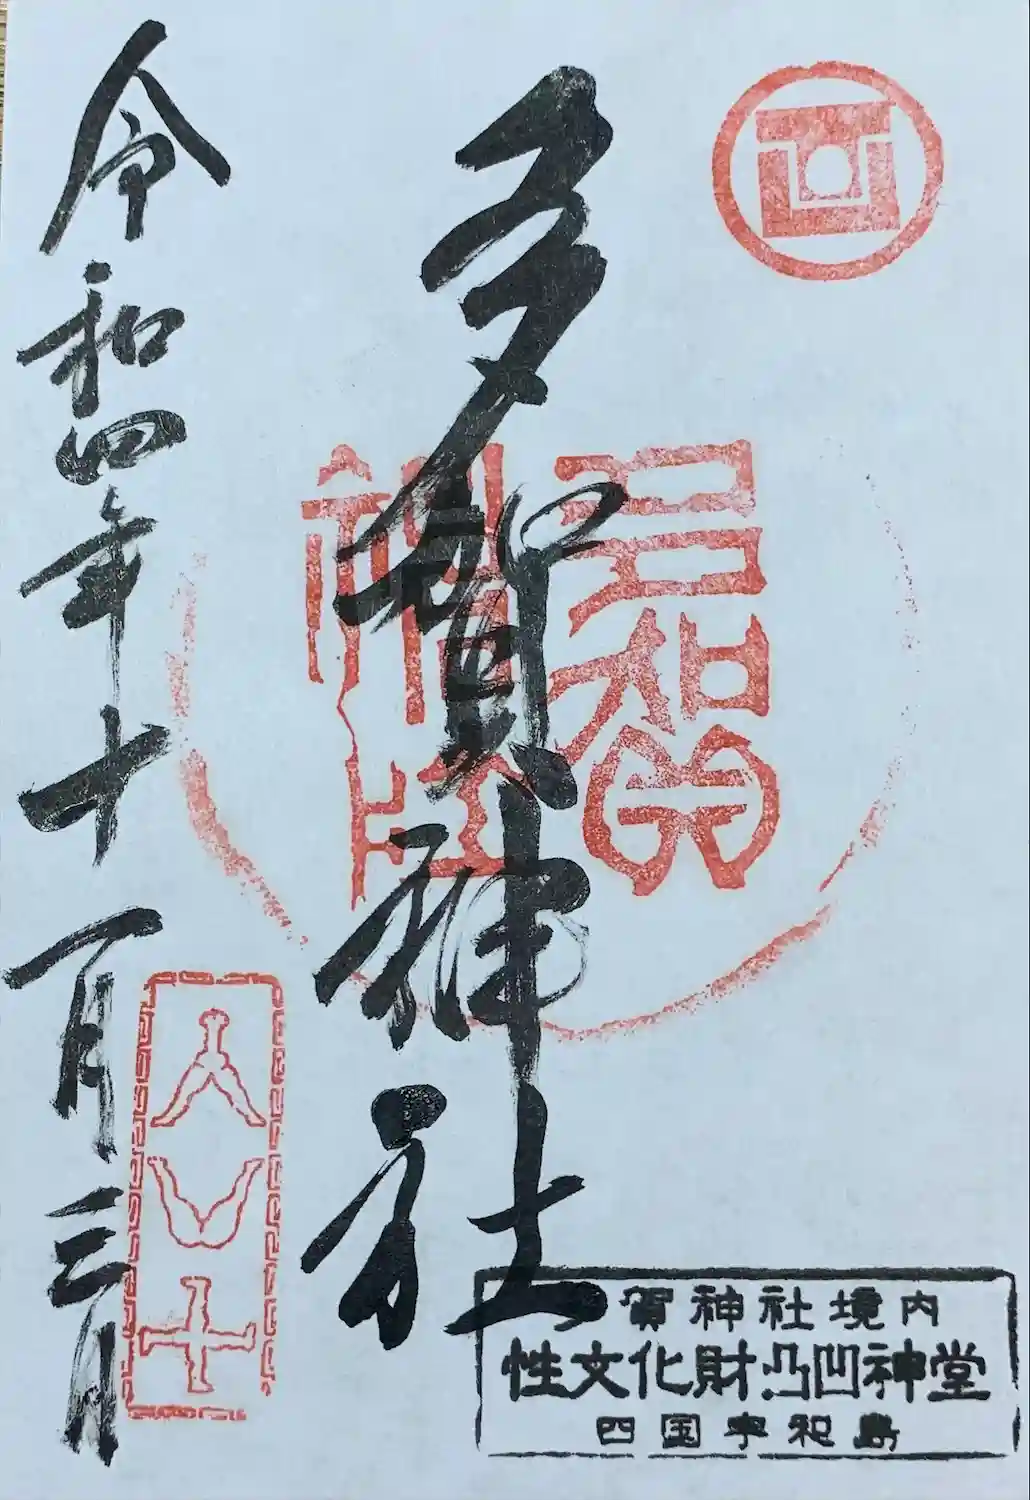 多賀神社
多賀
神社
令和四年十一月三日
多賀神社境内
性文化財凸凹神堂
四国宇和島